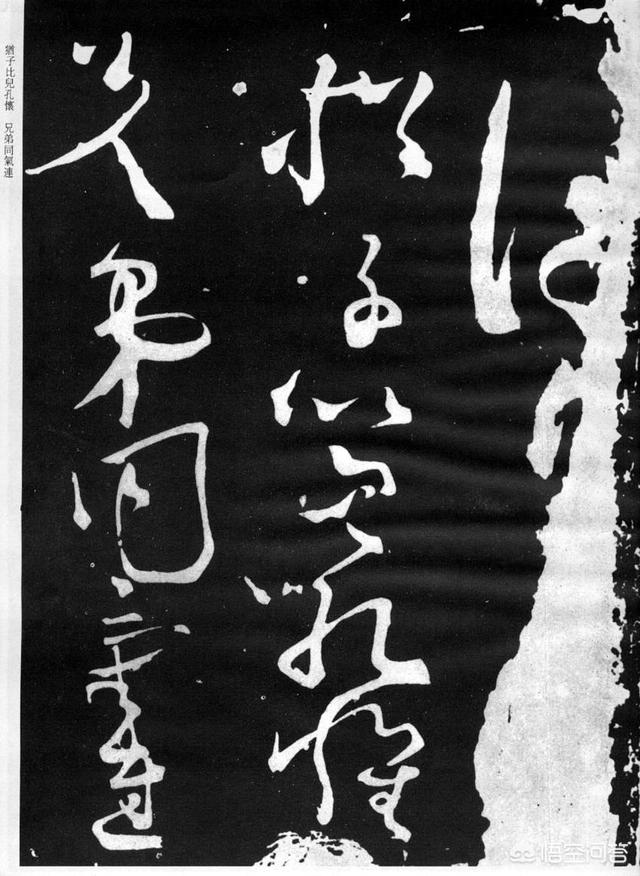 猶子比兒孔懷
兄弟同氣連
猶子比兒孔懷 兄弟同氣連
悟空问答